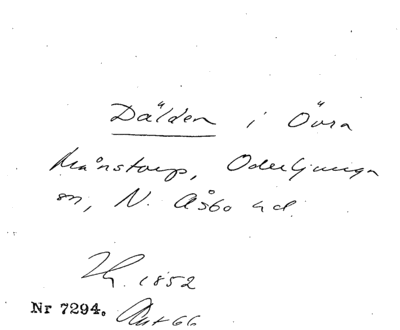 Dälden i Övra
Månstorp, Oderljunga
sn, N. Åsbo hd.
1852
Nr 7294.